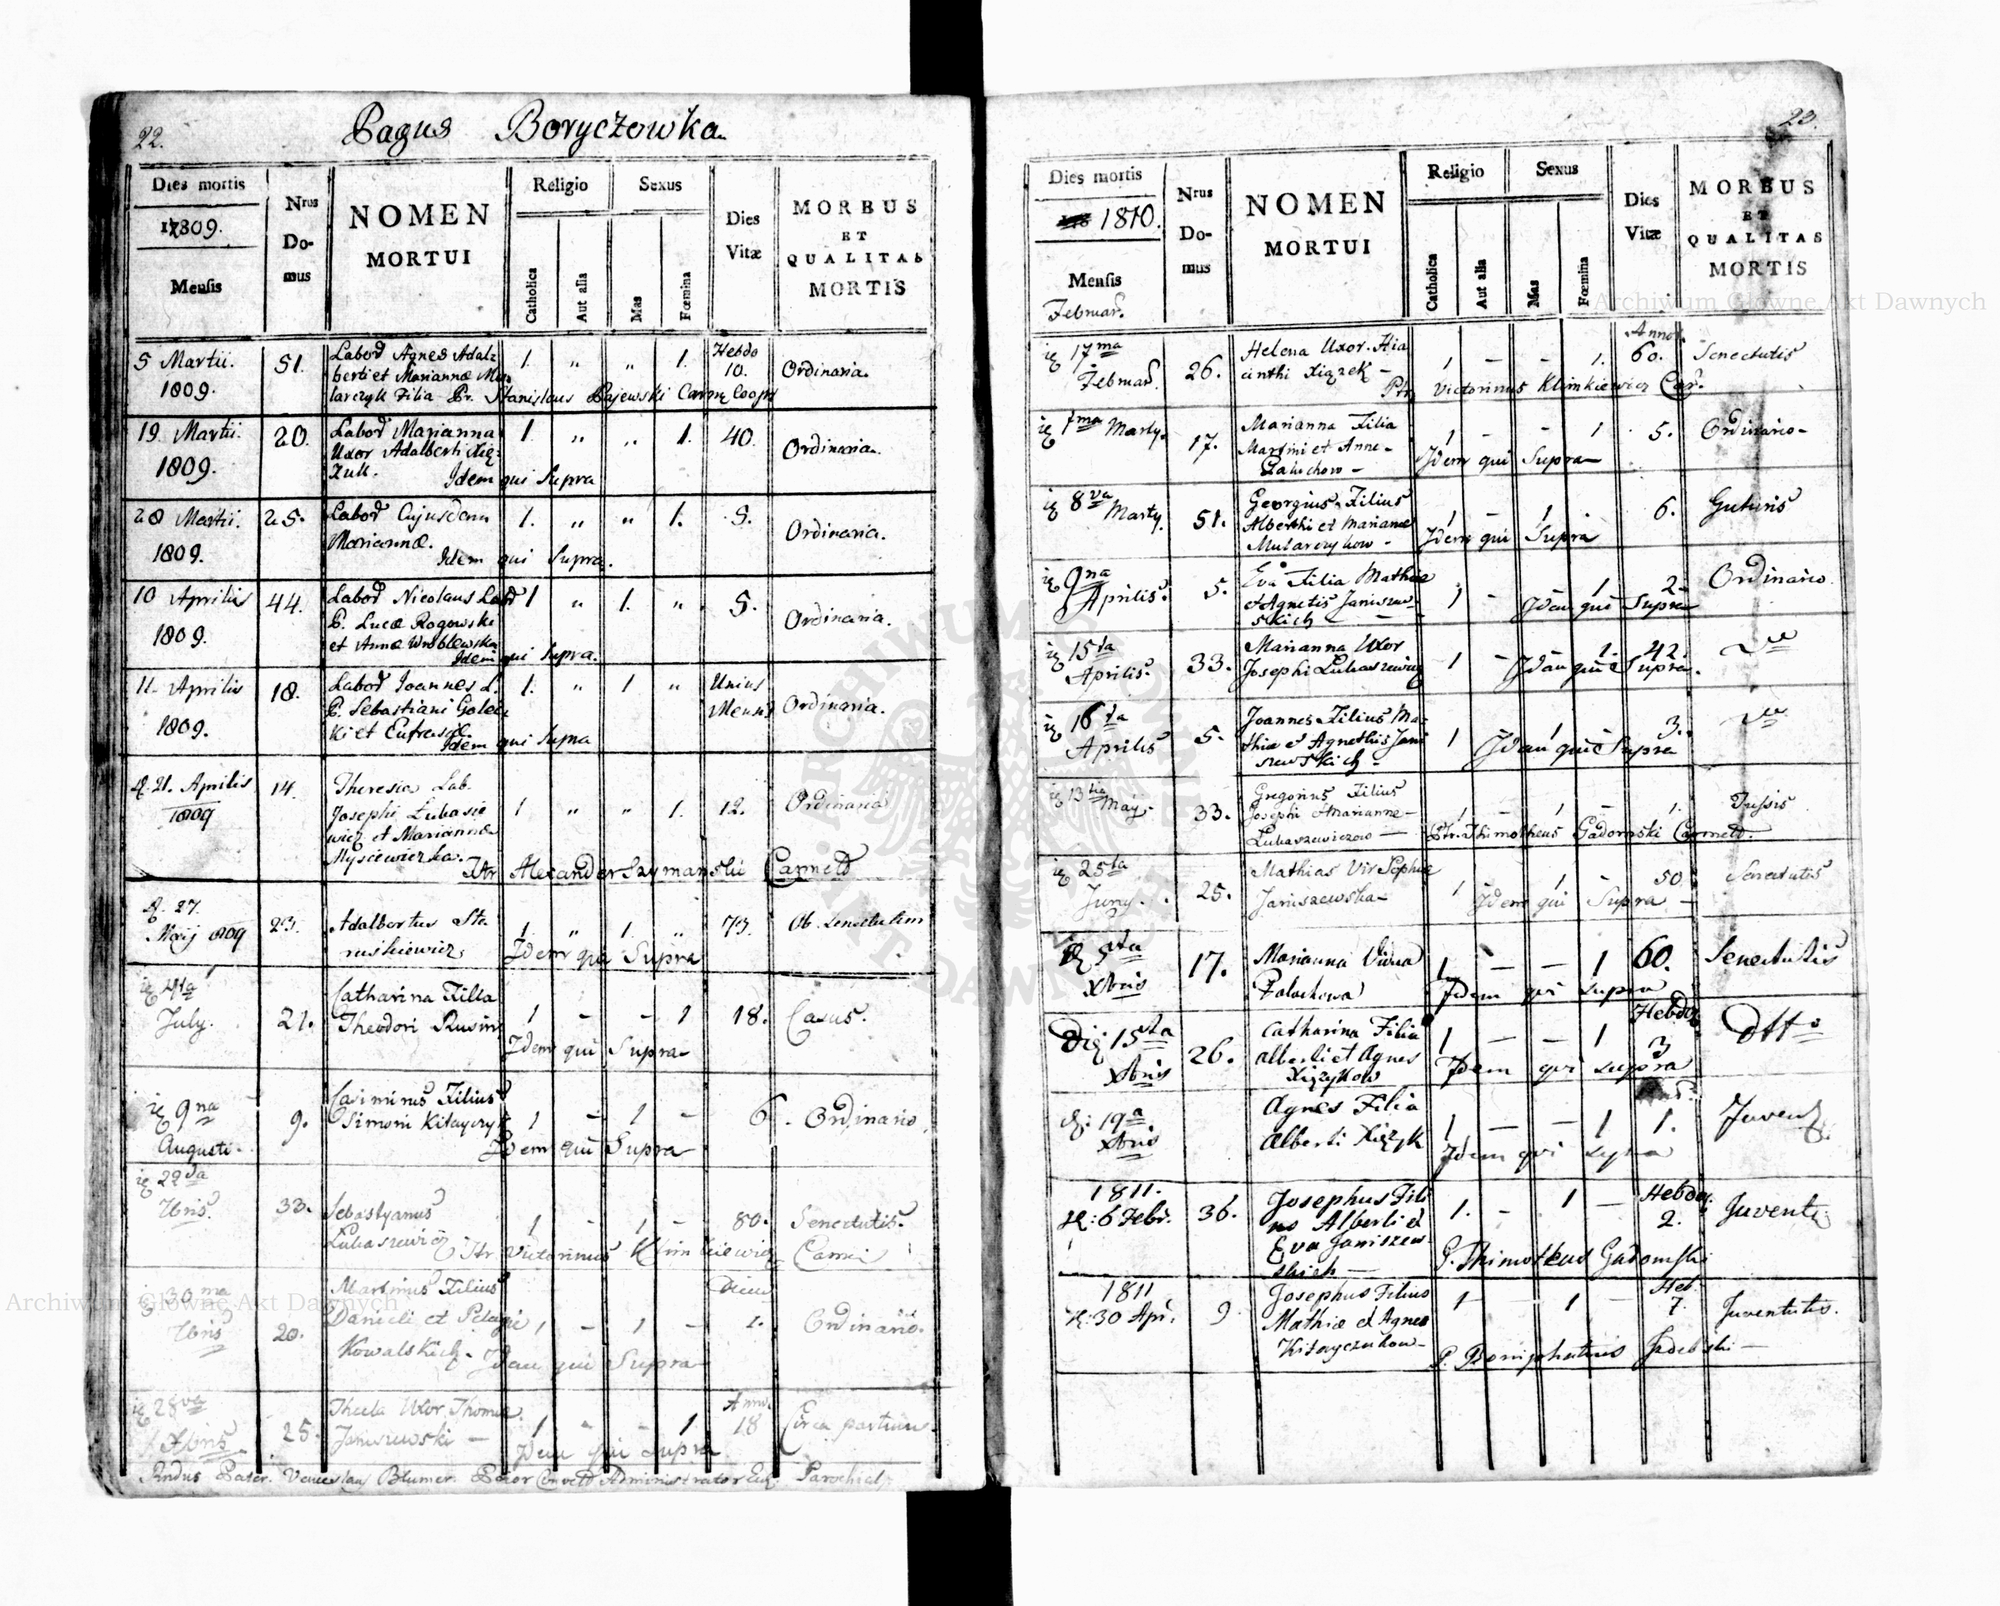 22.
Pagus Boryczowka
Dies mortis
1809.
Mensis
Nrus
Do-
mus
NOMEN
MORTUI
Religio
Catholica
Aut alia
Sexus
Mas
Fœmina
Dies
Vitæ
MORBUS
ET
QUALITAS
MORTIS
5 Martii. 51. Labor Agnes Adal- 1. " " 1. Hebdo
1809. berti et Mariannæ 10. Ordinaria.
larczyk Filia Pr. Stanislaus Pajewski Carm. Coop
19 Martii. 20. Labor Marianna 1. " " 1. 40. Ordinaria.
1809. Uxor Adalberti
Idem qui Supra
28 Martii. 25. Labor Cujusdam 1. " " 1. 5. Ordinaria.
1809. Mariannæ.
Idem qui Supra.
10 Aprilis 44. Labor Nicolaus 1 " 1. " 5. Ordinaria.
1809. P. Lucæ Rogowski
et Annæ Wróblewska
Idem qui Supra.
11. Aprilis 18. Labor Joannes L. 1. " 1 " Unius
1809. P. Sebastiani Mensis Ordinaria.
Ki et
Idem qui Supra
21. Aprilis 14. Theresia Lab.
1809 Josephi Lubasie 1 " " 1. 12. Ordinaria
wicz et Marianna
Mysciewiczka.
Alexander Szymanski Carmeld
27. 23. Adalbertus Sta 1. " 1. " 73. Ob. Senectutem
Maij 1809 ruskiewicz.
Idem qui Supra
4ta Catharina Filia
July. 21. Theodori Rusin 1 - - 1 18. Casus.
Idem qui Supra
9na Casimirus Filius
Augusti. 9. Simoni Kitayczyk 1 - 1 - 6. Ordinario.
Idem qui Supra
22da 33. Sebastyanus
Lubaszewicz 1 - 1 - 80. Senectutis.
Victorinus Klimkiewicz Carm:
30ma Martinus Filius
20. Danieli et Pelagie 1 - 1 - 1. Ordinario.
Kowalskich - Idem qui Supra
28va Thecla Uxor Thomæ Anno.
Xbris 25. Janiszewski - 1 - - 1. 18 Circa partum.
Idem qui Supra
Pater. Venceslaus Blumer. Prior Administrator
23.
Dies mortis
1810.
Mensis
Februar.
Nrus
Do-
mus
NOMEN
MORTUI
Religio
Catholica
Aut alia
Sexus
Mas
Fœmina
Dies
Vitæ
MORBUS
ET
QUALITAS
MORTIS
17ma Helena Uxor Hia Annor.
Februar. 26. cinthi Xiązek - 1 - - 1. 60. Senectutis
Ptr. Victorinus Klimkiewicz Car.
7ma Marty. 17. Marianna Filia 1 - - 1 5. Ordinario-
Martini et Anne-
Idem qui Supra
8va Marty. 51. Georgius Filius 1 - 1 - 6. Guturis
Alberthi et Marianne
Idem qui Supra
9na Aprilis. 5. Eva Filia Mathiæ 1 - 1 2- Ordinario.
et Agnetis Janiszew-
skich - Idem qui Supra
15ta Aprilis. 33. Marianna Uxor 1 - 1. 42.
Josephi Lubaszewicz Idem qui Supra.
16ta Aprilis 5. Joannes Filius Ma- 1 1 3.
thiæ et Agnethis Jani
szewskich - Idem qui Supra
13tia May. 33. Gregorius Filius 1 - 1 - 1. Tussis
Josephi et Marianne-
Lubaszewiczow - Ptr. Thimotheus Gadomski Carmeld.
25ta Juny. 25. Mathias Vir Sophiæ 1 1 50. Senectutis
Janiszewska- Idem qui Supra -
5ta Xbris 17. Marianna Vidua 1 - - 1 60. Senectutis
Palachowa Idem qvi supra
Die 15ta Xbris 26. Catharina Filia 1 - - 1 Hebdo.
Alberti et Agnes 3 dtto
Idem qvi supra
19a Xbris Agnes Filia 1 - - 1 1. Juvent.
Alberti Xięzyk
Idem qvi
1811. Josephus Fili 1. - 1 - Hebdo.
6 Febr. 36. us Alberti et 2. Juvent:
Eva Janiszew-
skich - P. Thimotheus Gadomski
1811 Josephus Filius 1 - 1 - Heb.
30 Apr. 9 Mathiæ et Agnes 7. Juventutis.
Kitayczukow-
P. Boniphatius
Archiwum Główne Akt Dawnych
Archiwum Główne Akt Dawnych
ARCHIWUM GŁÓWNE AKT DAWNYCH